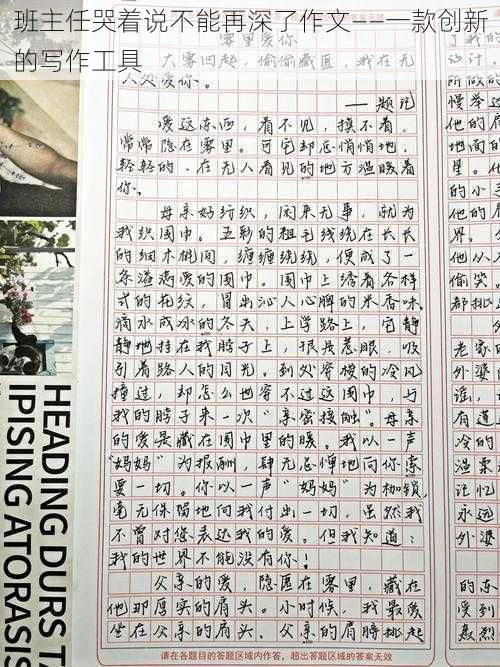 班主任哭着说不能再深了作文——一款创新
的写作工具
雾里爱你
大雾四起，偷偷藏匿，我在无
——题记
爱这东西，看不见，摸不着，
常常隐在雾里。可它却总悄悄地、
轻轻的、在无人看见的地方温暖着
你。
母亲好纺织，闲来无事，就为
我织围巾。五彩的粗毛线绕在长长
的细木棍间，缠缠绕绕，便成了一
条溢满爱的围巾。围巾上绣着各样
式的花纹，冒出沁人心脾的米香味。
滴水成冰的冬天，上学路上，它静
静地挂在我脖子上，很是惹眼，吸
引着路人的目光。到处穿梭的冷风
撞过，却怎么地穿不过这围巾，与
我的脖子来一次“亲密接触”。母亲
的爱是藏在围巾里的暖。我以一声
“妈妈”为报酬，肆无忌惮地向你索
要一切。你以一声“妈妈”为枷锁，
毫无保留地向我付出一切，虽然我
不曾对您表达我的爱。但我知道：
我的世界不能没有你！
父亲的爱，隐匿在雾里，藏在
他那厚实的肩头。小时候，我最爱
坐在父亲的肩头，父亲的肩膀挑起
请在各题目的答题区域内作答，超出答题区域无效
了我的
过计，
所做的
慢举
他的肩
地面的
星。他
的小
他的肩
界。
他以
偷笑。
都挑
老家
外婆
谣，
有道
冷的
温柔
记忆
永远
外婆
的东
受到
轰烈
HEADING DURS TA
IPISING ATORASIS